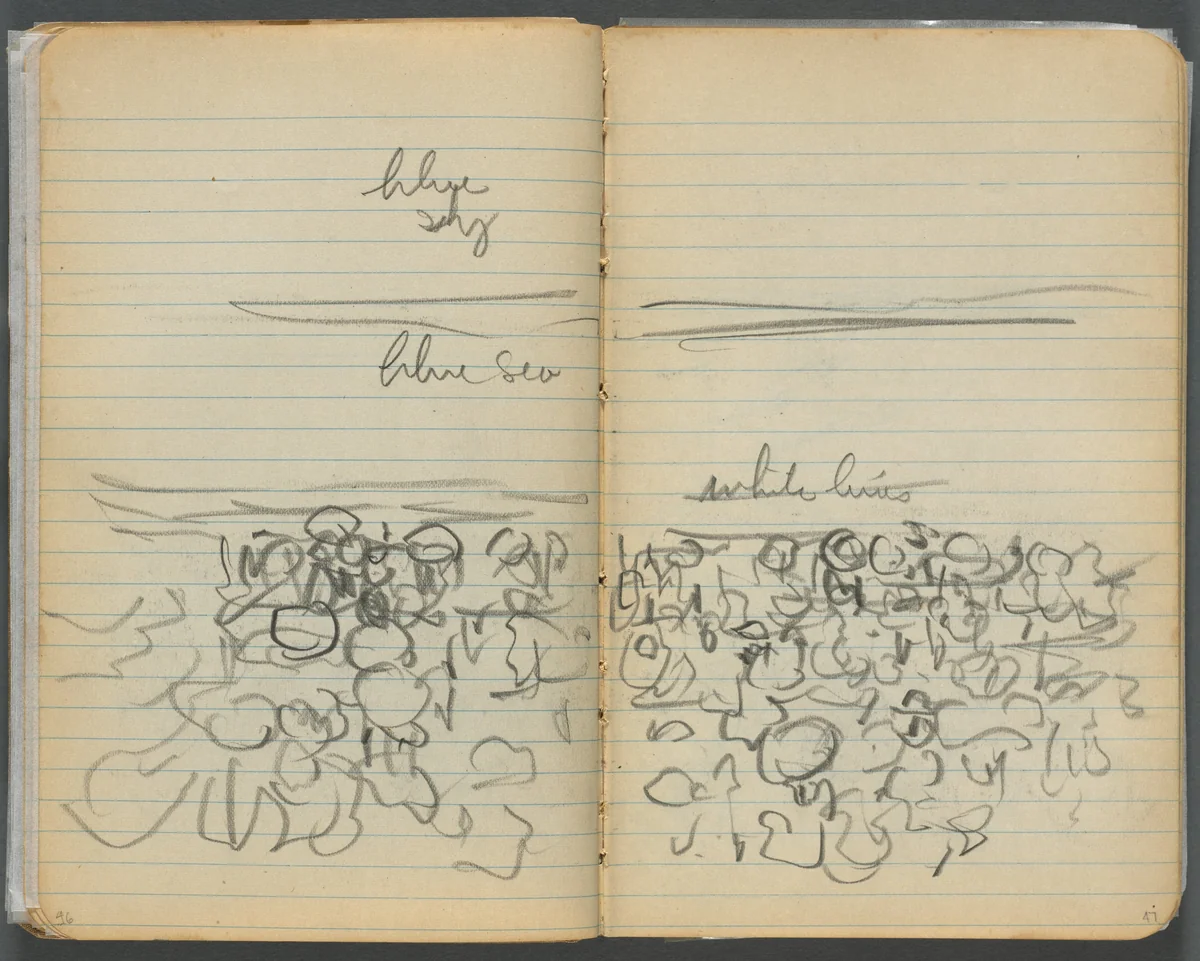 blue
sky
blue sea
white lines
96
97